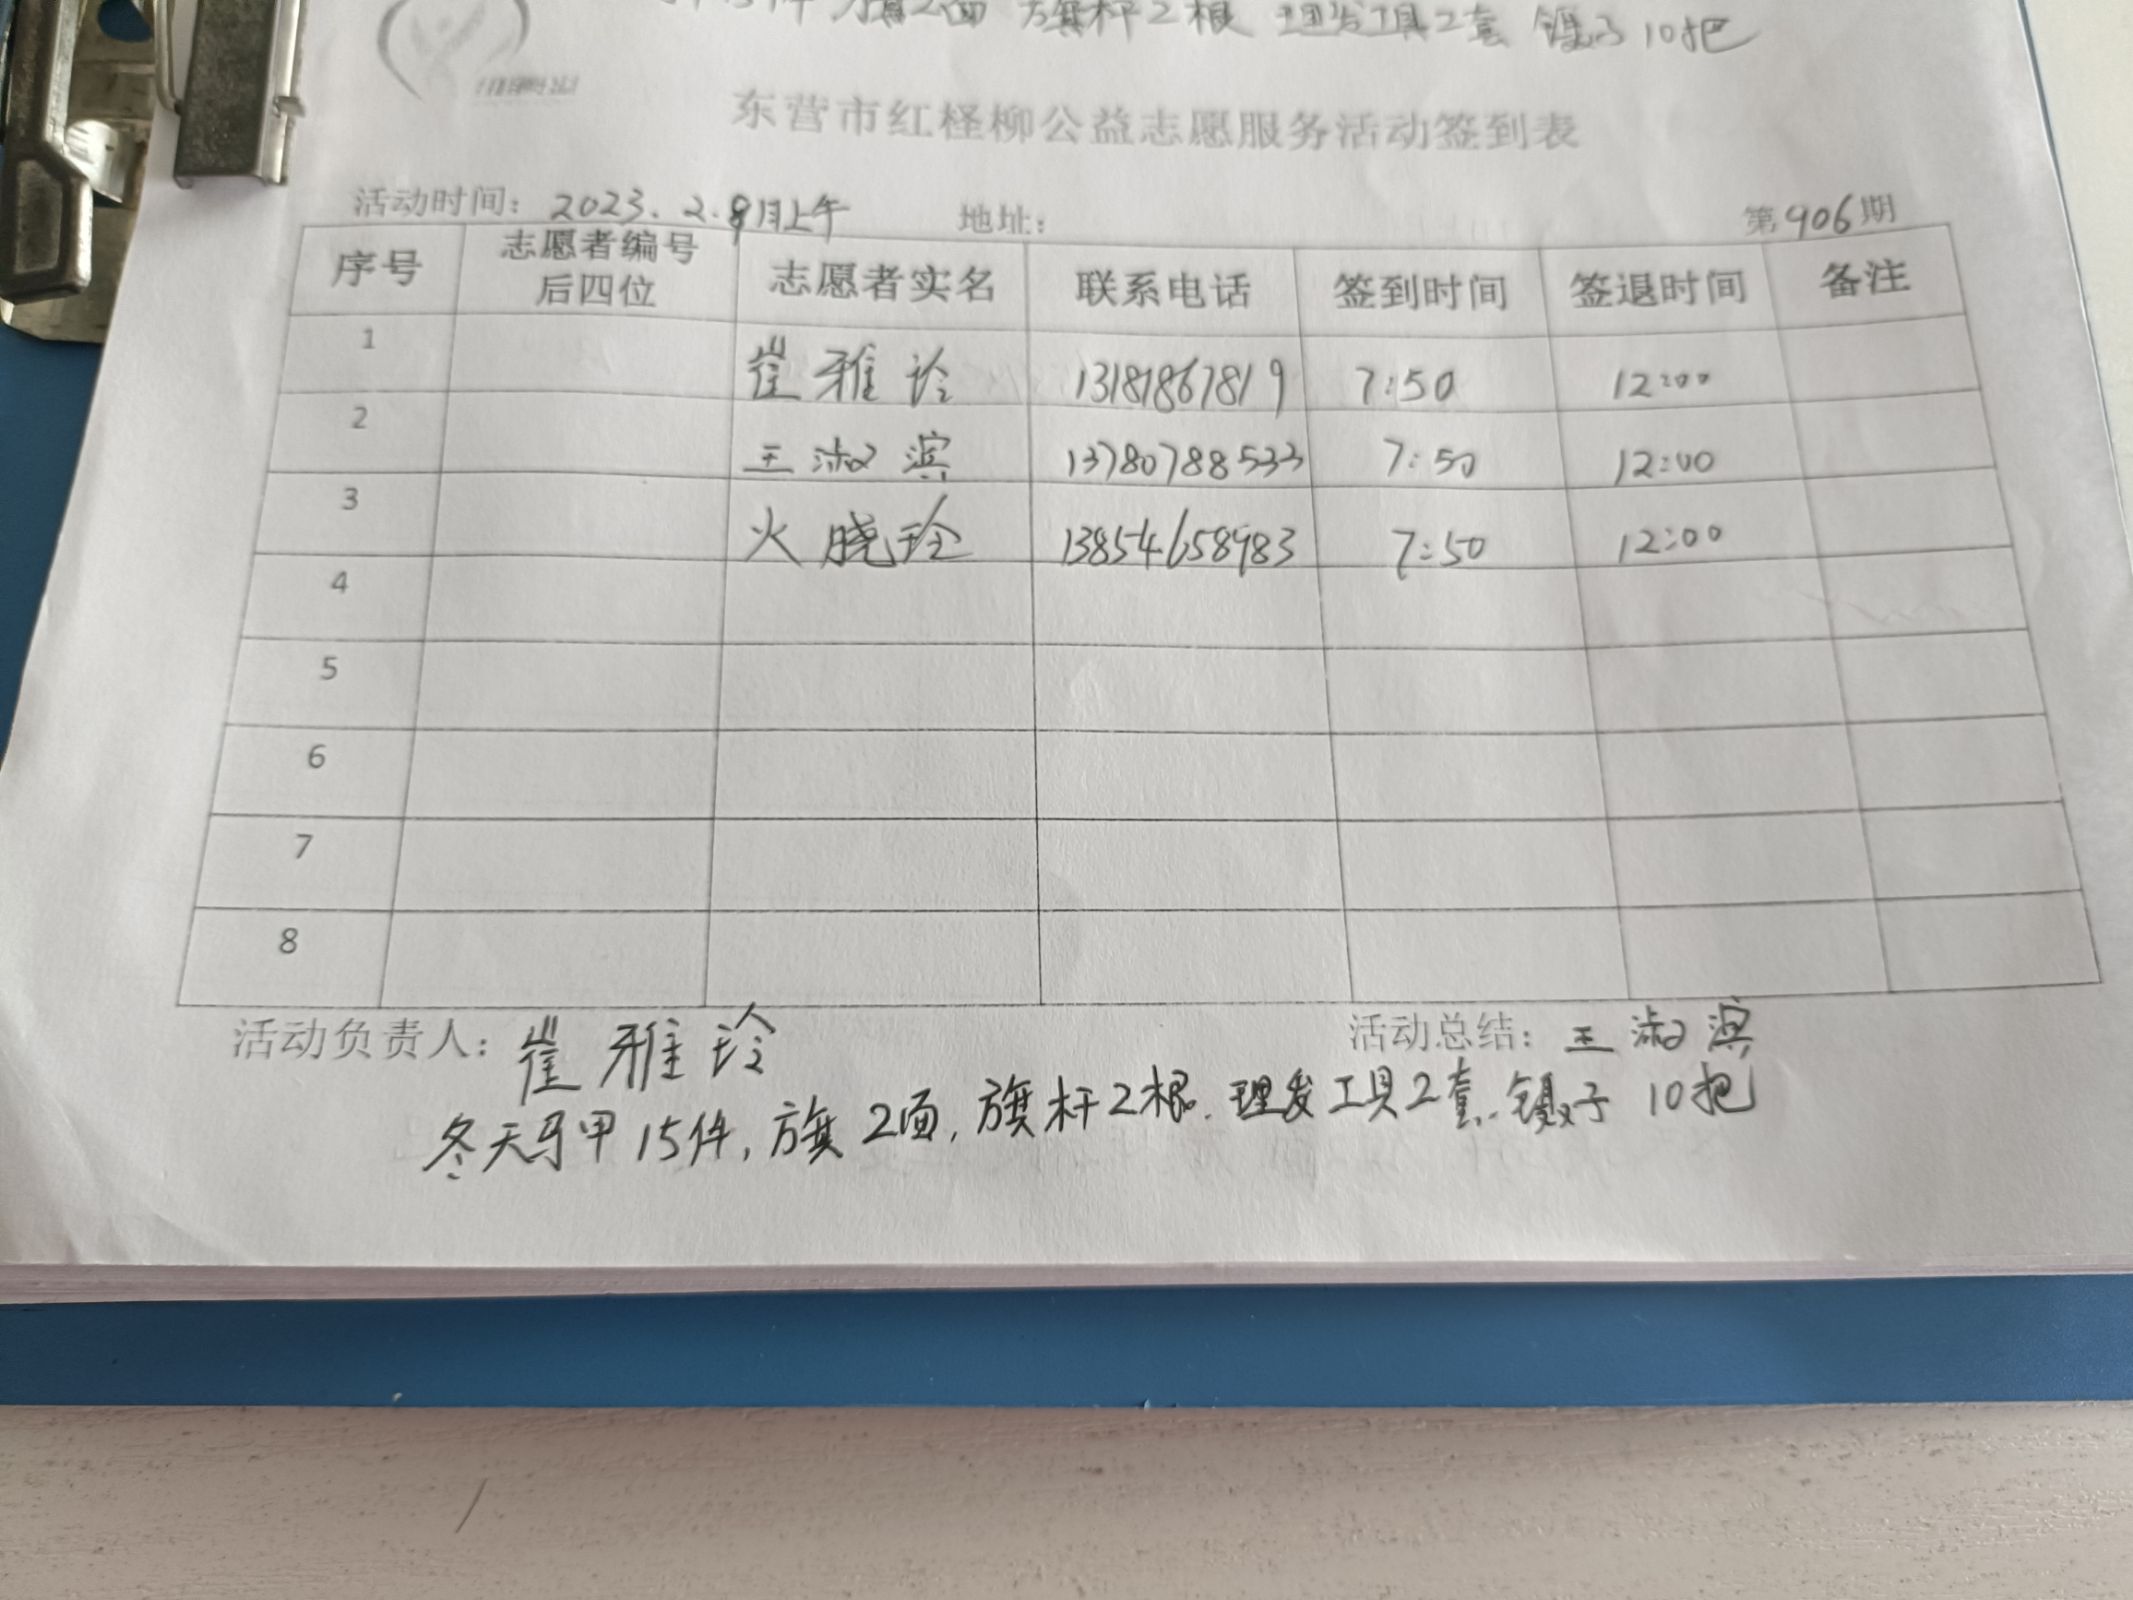 15件 旗2面 旗杆2根 理发工具2套 镊子10把
东营市红柽柳公益志愿服务活动签到表
活动时间：2023.2.8月上午 地址： 第906期
序号 志愿者编号后四位 志愿者实名 联系电话 签到时间 签退时间 备注
1 崔雅玲 13181867819 7:50 12:00
2 王淑滨 13780788533 7:50 12:00
3 火晓玲 13854658983 7:50 12:00
4
5
6
7
8
活动负责人：崔雅玲 活动总结：王淑滨
冬天马甲15件，旗2面，旗杆2根．理发工具2套．镊子10把